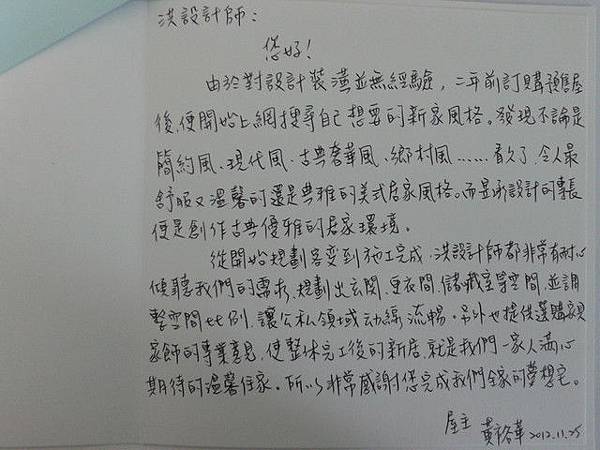 洪設計師：
您好！
由於對設計裝潢並無經驗，二年前訂購預售屋
後，便開始上網搜尋自己想要的新家風格。發現不論是
簡約風、現代風、古典奢華風、鄉村風……看久了，令人最
舒服又溫馨的還是典雅的美式居家風格。而昱承設計的專長
便是創作古典優雅的居家環境。
從開始規劃客變到施工完成，洪設計師都非常有耐心
傾聽我們的需求，規劃出玄關、更衣間、儲藏室等空間，並調
整空間比例，讓公私領域动線流暢。另外也提供選購家具
家飾的專業意見，使整体完工後的新居，就是我們一家人滿心
期待的溫馨住家。所以非常感謝您完成我們全家的夢想宅。
屋主 黃裕華 2012.11.25